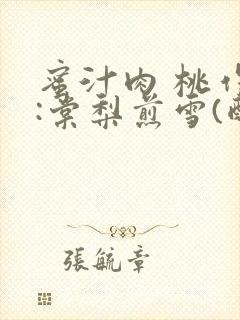 蜜汁肉桃作
:棠梨煎雪(酥
張毓章